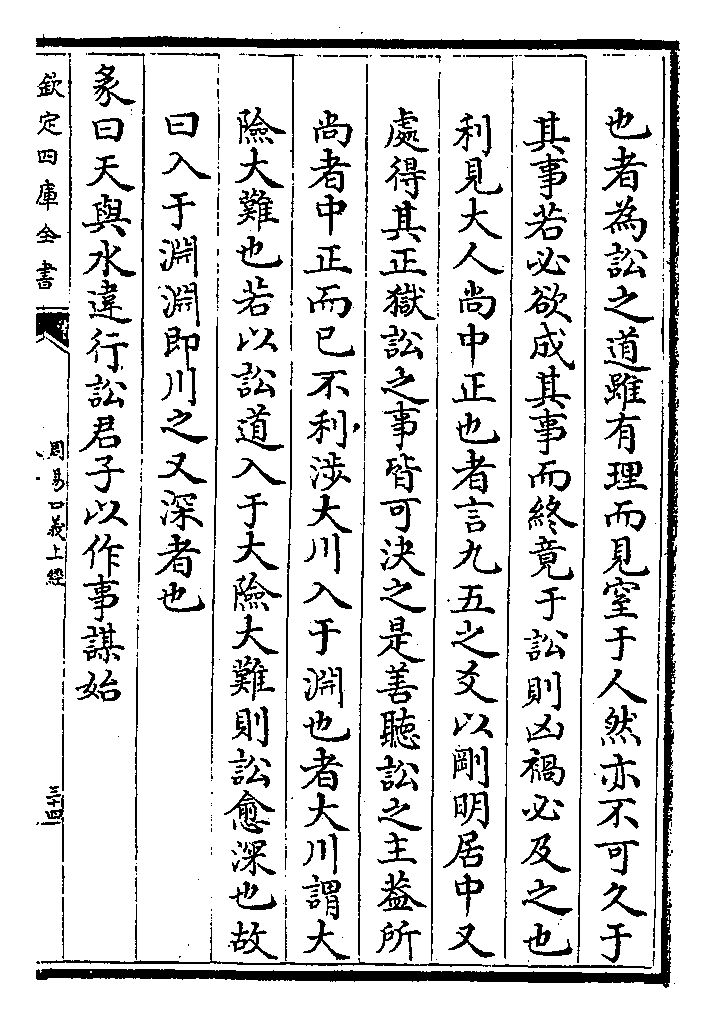 也者為訟之道雖有理而見窒于人然亦不可久于
其事若必欲成其事而終竟于訟則凶禍必及之也
利見大人尚中正也者言九五之爻以剛明居中又
處得其正獄訟之事皆可決之是善聽訟之主葢所
尚者中正而已不利涉大川入于淵也者大川謂大
險大難也若以訟道入于大險大難則訟愈深也故
曰入于淵淵即川之又深者也
象曰天與水違行訟君子以作事謀始
欽定四庫全書
周易口義上經
三十四